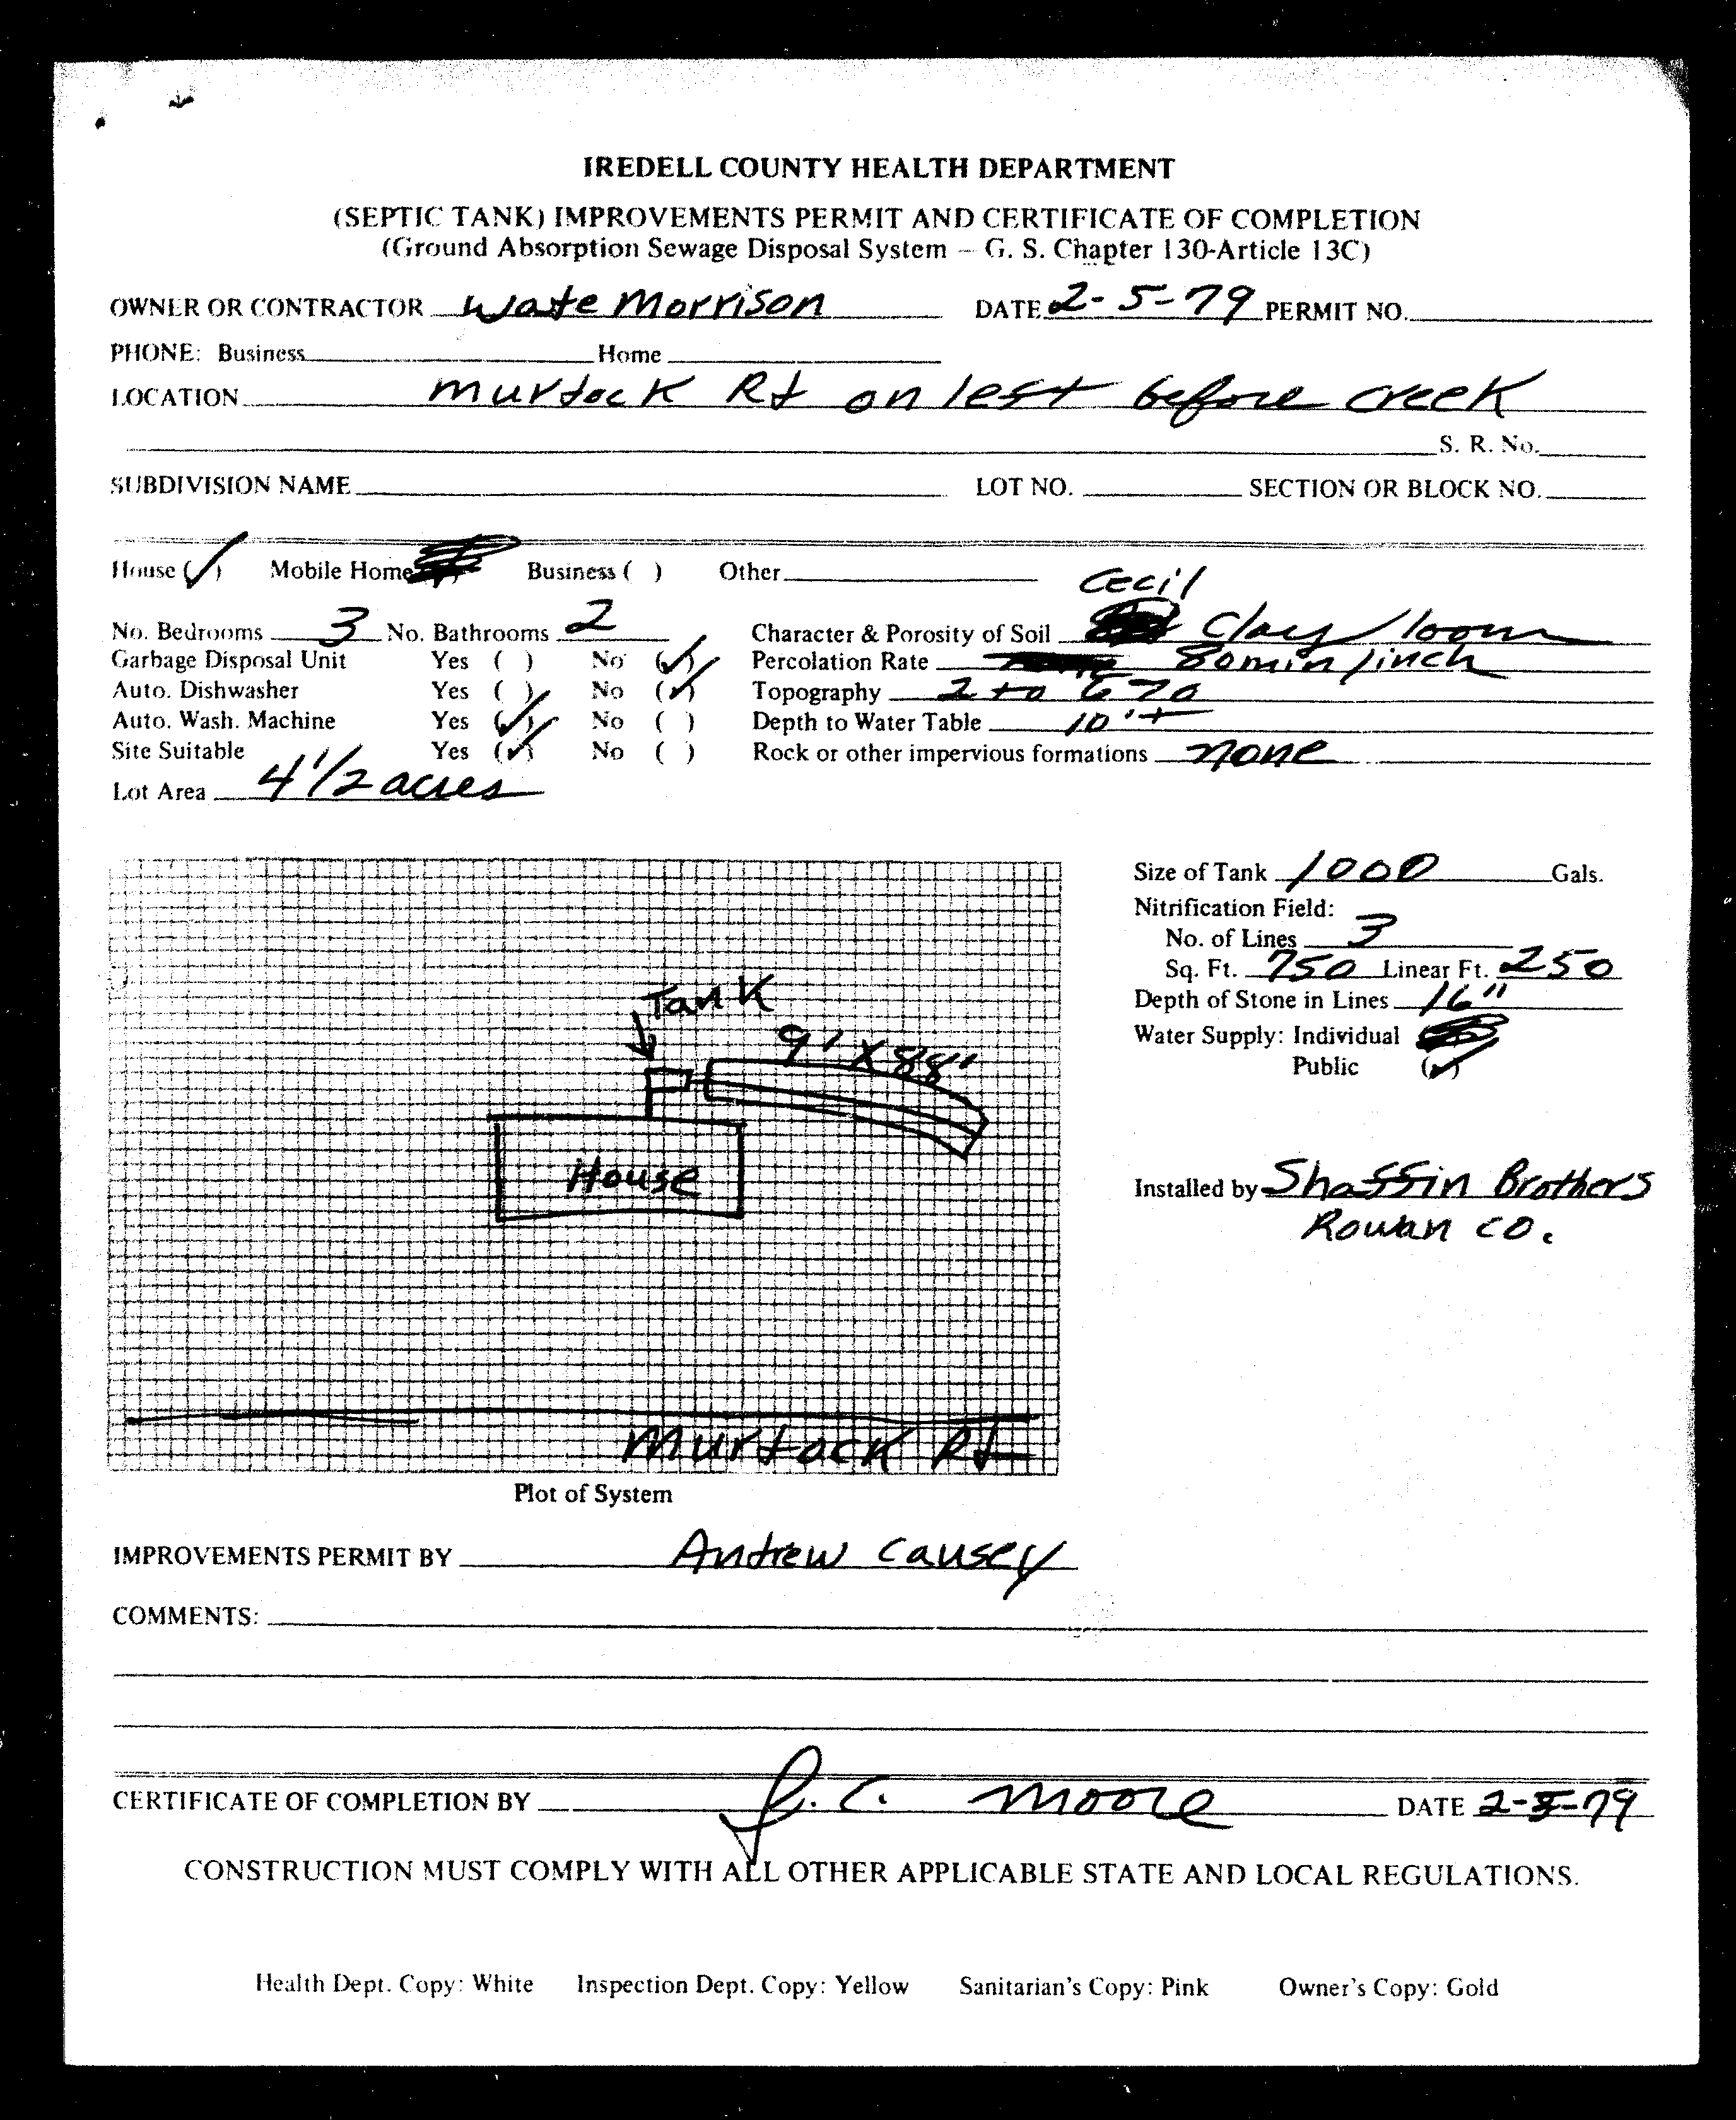 IREDELL COUNTY HEALTH DEPARTMENT
(SEPTIC TANK) IMPROVEMENTS PERMIT AND CERTIFICATE OF COMPLETION
(Ground Absorption Sewage Disposal System – G. S. Chapter 130-Article 13C)
OWNER OR CONTRACTOR Wate Morrison DATE 2-5-79 PERMIT NO.
PHONE: Business Home
LOCATION Murdock Rd on left before creek
S. R. No.
SUBDIVISION NAME LOT NO. SECTION OR BLOCK NO.
House (✓) Mobile Home Business ( ) Other
Cecil
No. Bedrooms 3 No. Bathrooms 2 Character & Porosity of Soil Clay loom
Garbage Disposal Unit Yes ( ) No (✓) Percolation Rate 80 min/inch
Auto. Dishwasher Yes ( ) No (✓) Topography 2 to 6 %
Auto. Wash. Machine Yes (✓) No ( ) Depth to Water Table 10'+
Site Suitable Yes (✓) No ( ) Rock or other impervious formations none
Lot Area 4 1/2 acres
Size of Tank 1000 Gals.
Nitrification Field:
No. of Lines 3
Sq. Ft. 750 Linear Ft. 250
Depth of Stone in Lines 16"
Water Supply: Individual
Public (✓)
Tank
9' X 88'
House
Installed by Shaffin Brothers
Rowan CO.
Murdock Rd
Plot of System
IMPROVEMENTS PERMIT BY Andrew Causey
COMMENTS:
CERTIFICATE OF COMPLETION BY J. C. Moore DATE 2-5-79
CONSTRUCTION MUST COMPLY WITH ALL OTHER APPLICABLE STATE AND LOCAL REGULATIONS.
Health Dept. Copy: White Inspection Dept. Copy: Yellow Sanitarian's Copy: Pink Owner's Copy: Gold